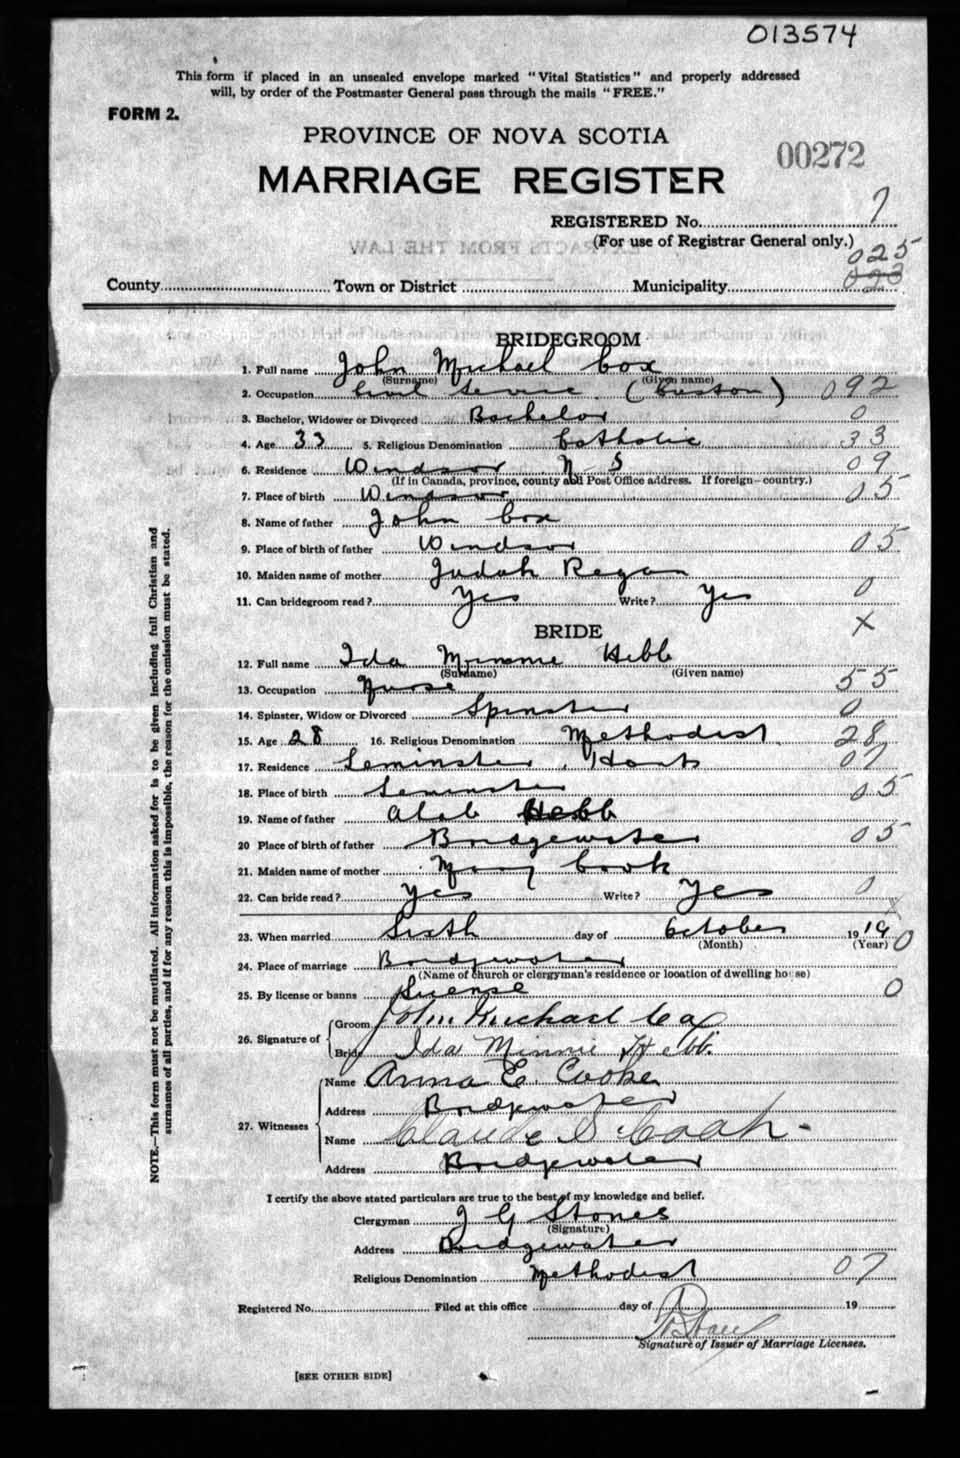 013574
This form if placed in an unsealed envelope marked "Vital Statistics" and properly addressed
will, by order of the Postmaster General pass through the mails "FREE."
FORM 2.
PROVINCE OF NOVA SCOTIA
00272
MARRIAGE REGISTER
REGISTERED No. 7
(For use of Registrar General only.)
025
County Town or District Municipality 023
BRIDEGROOM
1. Full name John Michael Cox
(Surname) (Given name)
2. Occupation Civil Service (Custom) 092
3. Bachelor, Widower or Divorced Bachelor 0
4. Age 33 5. Religious Denomination Catholic 33
6. Residence Windsor N-S 09
(If in Canada, province, county and Post Office address. If foreign—country.)
7. Place of birth Windsor 05
8. Name of father John Cox
9. Place of birth of father Windsor 05
10. Maiden name of mother Judah Regan
11. Can bridegroom read? Yes Write? Yes 0
BRIDE X
12. Full name Ida Minnie Hebb
(Surname) (Given name)
13. Occupation Nurse 55
14. Spinster, Widow or Divorced Spinster 0
15. Age 28 16. Religious Denomination Methodist 28
17. Residence Leminster, Hants 07
18. Place of birth Leminster 05
19. Name of father Hebb
20 Place of birth of father Bridgewater 05
21. Maiden name of mother Mary Cook
22. Can bride read? Yes Write? Yes 0
X
23. When married Sixth day of October 1919
(Month) (Year) 0
24. Place of marriage Bridgewater
(Name of church or clergyman's residence or location of dwelling house)
25. By license or banns License 0
26. Signature of Groom John Michael Cox
Bride Ida Minnie Hebb.
27. Witnesses Name Anna E. Cooke
Address Bridgewater
Name Claude S. Cook
Address Bridgewater
I certify the above stated particulars are true to the best of my knowledge and belief.
Clergyman J G Stones
(Signature)
Address Bridgewater
Religious Denomination Methodist 07
Registered No. Filed at this office day of 19
Signature of Issuer of Marriage Licenses.
[SEE OTHER SIDE]
NOTE.—This form must not be mutilated. All information asked for is to be given including full Christian and
surnames of all parties, and if for any reason this is impossible, the reason for the omission must be stated.